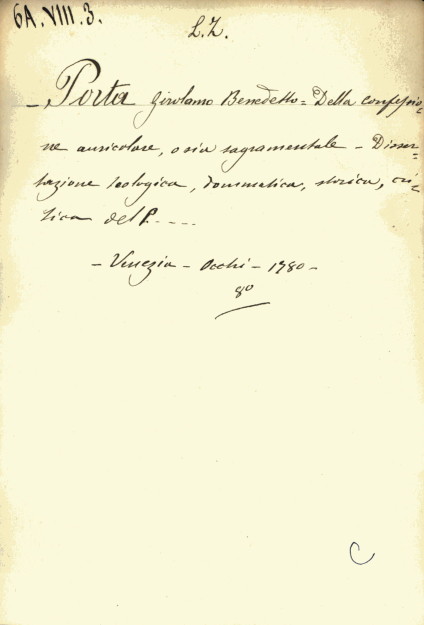 6A.VIII.3.
L.Z.
- Porta Girolamo Benedetto = Della confessio-
ne auricolare, o sia sagramentale - Disser-
tazione teologica, dommatica, storica, cri-
tica del P. ----
- Venezia - Occhi - 1780 -
8º
C